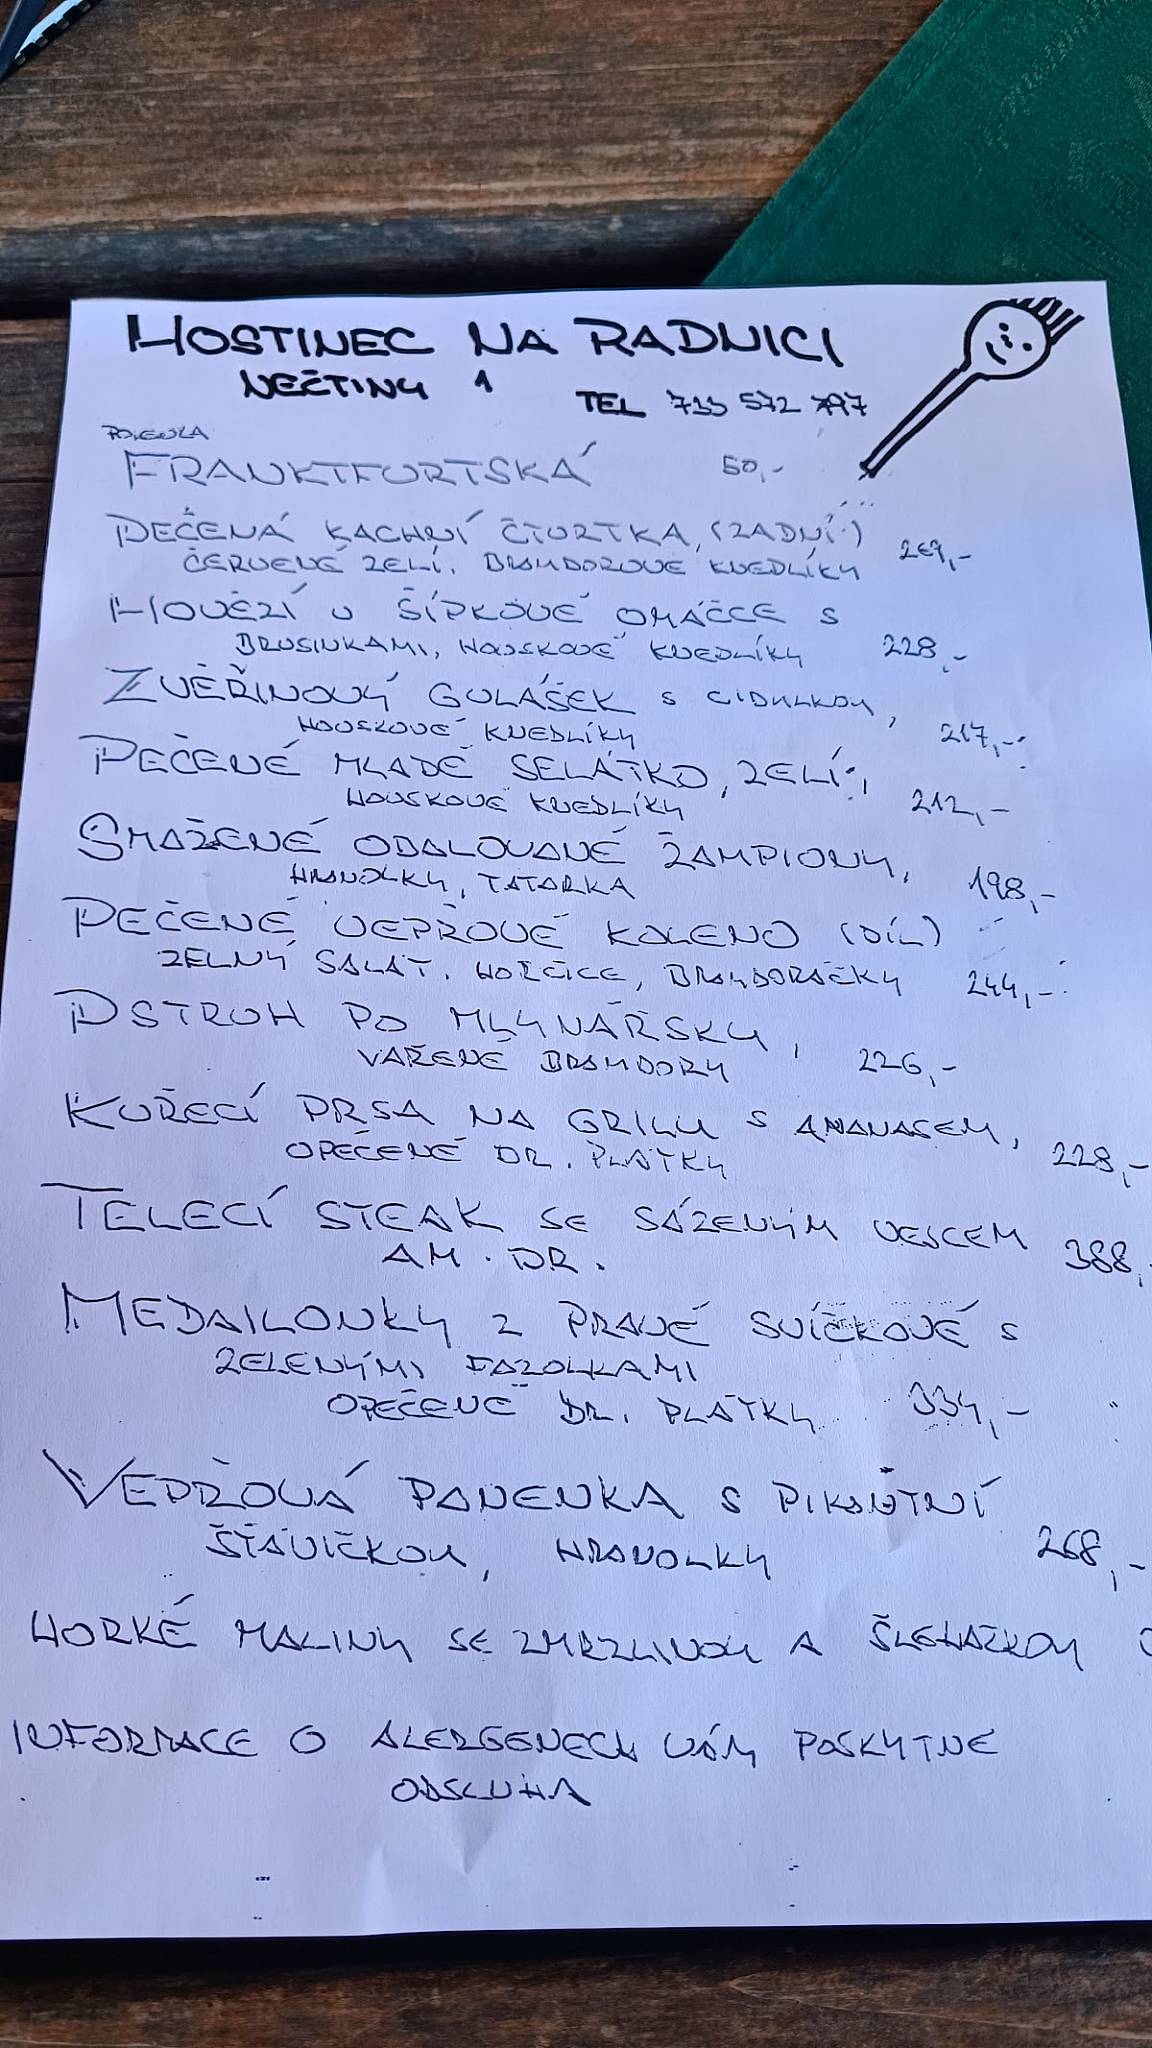 HOSTINEC NA RADNICI
NEČTINY 1 TEL 733 572 797
POLÉVKA
FRANKTFURTSKÁ 50,-
PEČENÁ KACHNÍ ČTVRTKA, (ZADNÍ)
ČERVENÉ ZELÍ, BRAMBOROVÉ KNEDLÍKY 269,-
HOVĚZÍ V ŠÍPKOVÉ OMÁČCE S
BRUSINKAMI, HOUSKOVÉ KNEDLÍKY 228,-
ZVĚŘINOVÝ GULÁŠEK S CIBULKOU,
HOUSKOVÉ KNEDLÍKY 217,-
PEČENÉ MLADÉ SELÁTKO, ZELÍ,
HOUSKOVÉ KNEDLÍKY 212,-
SMAŽENÉ OBALOVANÉ ŽAMPIONY,
HRANOLKY, TATARKA 198,-
PEČENÉ VEPŘOVÉ KOLENO (DÍL)
ZELNÝ SALÁT, HOŘČICE, BRAMBORÁČKY 244,-
PSTRUH PO MLYNÁŘSKU,
VAŘENÉ BRAMBORY 226,-
KUŘECÍ PRSA NA GRILU S ANANASEM,
OPEČENÉ BR. PLÁTKY 228,-
TELECÍ STEAK SE SÁZENÝM VEJCEM 388,
AM. BR.
MEDAILONKY Z PRAVÉ SVÍČKOVÉ S
ZELENÝMI FAZOLKAMI
OPEČENÉ BR. PLÁTKY 334,-
VEPŘOVÁ PANENKA S PIKANTNÍ
ŠŤÁVIČKOU, HRANOLKY 268,-
HORKÉ MALINY SE ZMRZLINOU A ŠLEHAČKOU
INFORMACE O ALERGENECH VÁM POSKYTNE
OBSLUHA